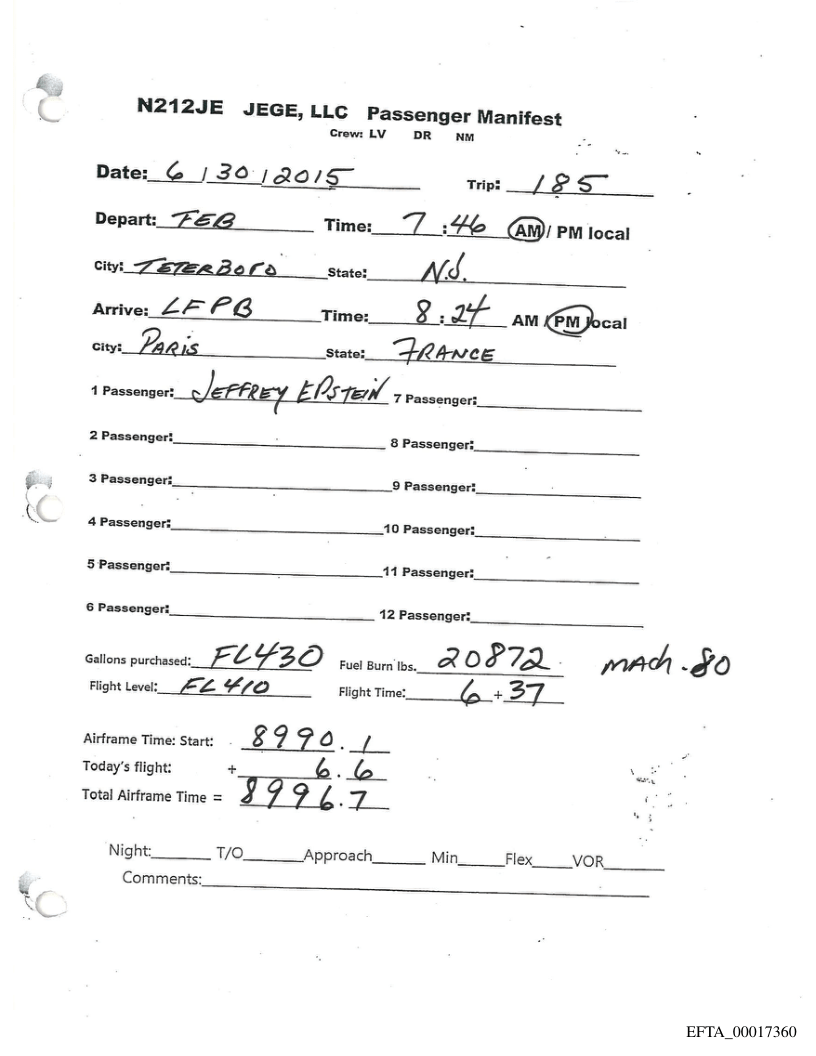 N212JE JEGE, LLC Passenger Manifest
Crew: LV DR NM
Date: 6 / 30 / 2015 Trip: 185
Depart: TEB Time: 7 : 46 AM / PM local
City: TETERBORO State: N.J.
Arrive: LFPB Time: 8 : 24 AM / PM local
City: PARIS State: FRANCE
1 Passenger: JEFFREY EPSTEIN 7 Passenger:
2 Passenger: 8 Passenger:
3 Passenger: 9 Passenger:
4 Passenger: 10 Passenger:
5 Passenger: 11 Passenger:
6 Passenger: 12 Passenger:
Gallons purchased: FL430 Fuel Burn lbs. 20872 MACH .80
Flight Level: FL 410 Flight Time: 6 + 37
Airframe Time: Start: 8990.1
Today's flight: + 6.6
Total Airframe Time = 8996.7
Night: T/O Approach Min Flex VOR
Comments:
EFTA_00017360